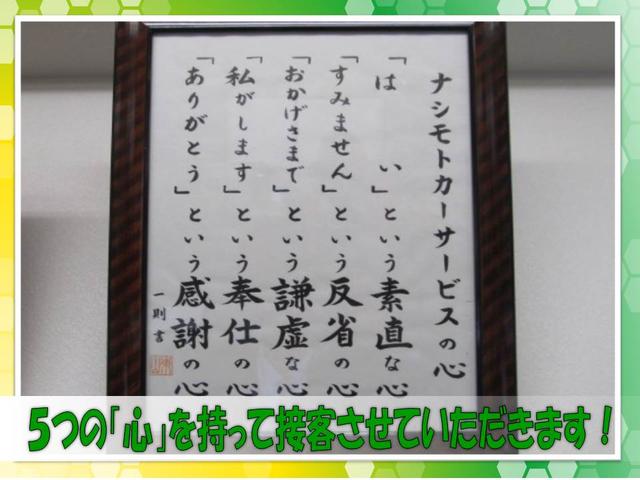 ナシモトカーサービスの心
「はい」という素直な心
「すみません」という反省の心
「おかげさまで」という謙虚な心
「私がします」という奉仕の心
「ありがとう」という感謝の心
一則書
5つの「心」を持って接客させていただきます！